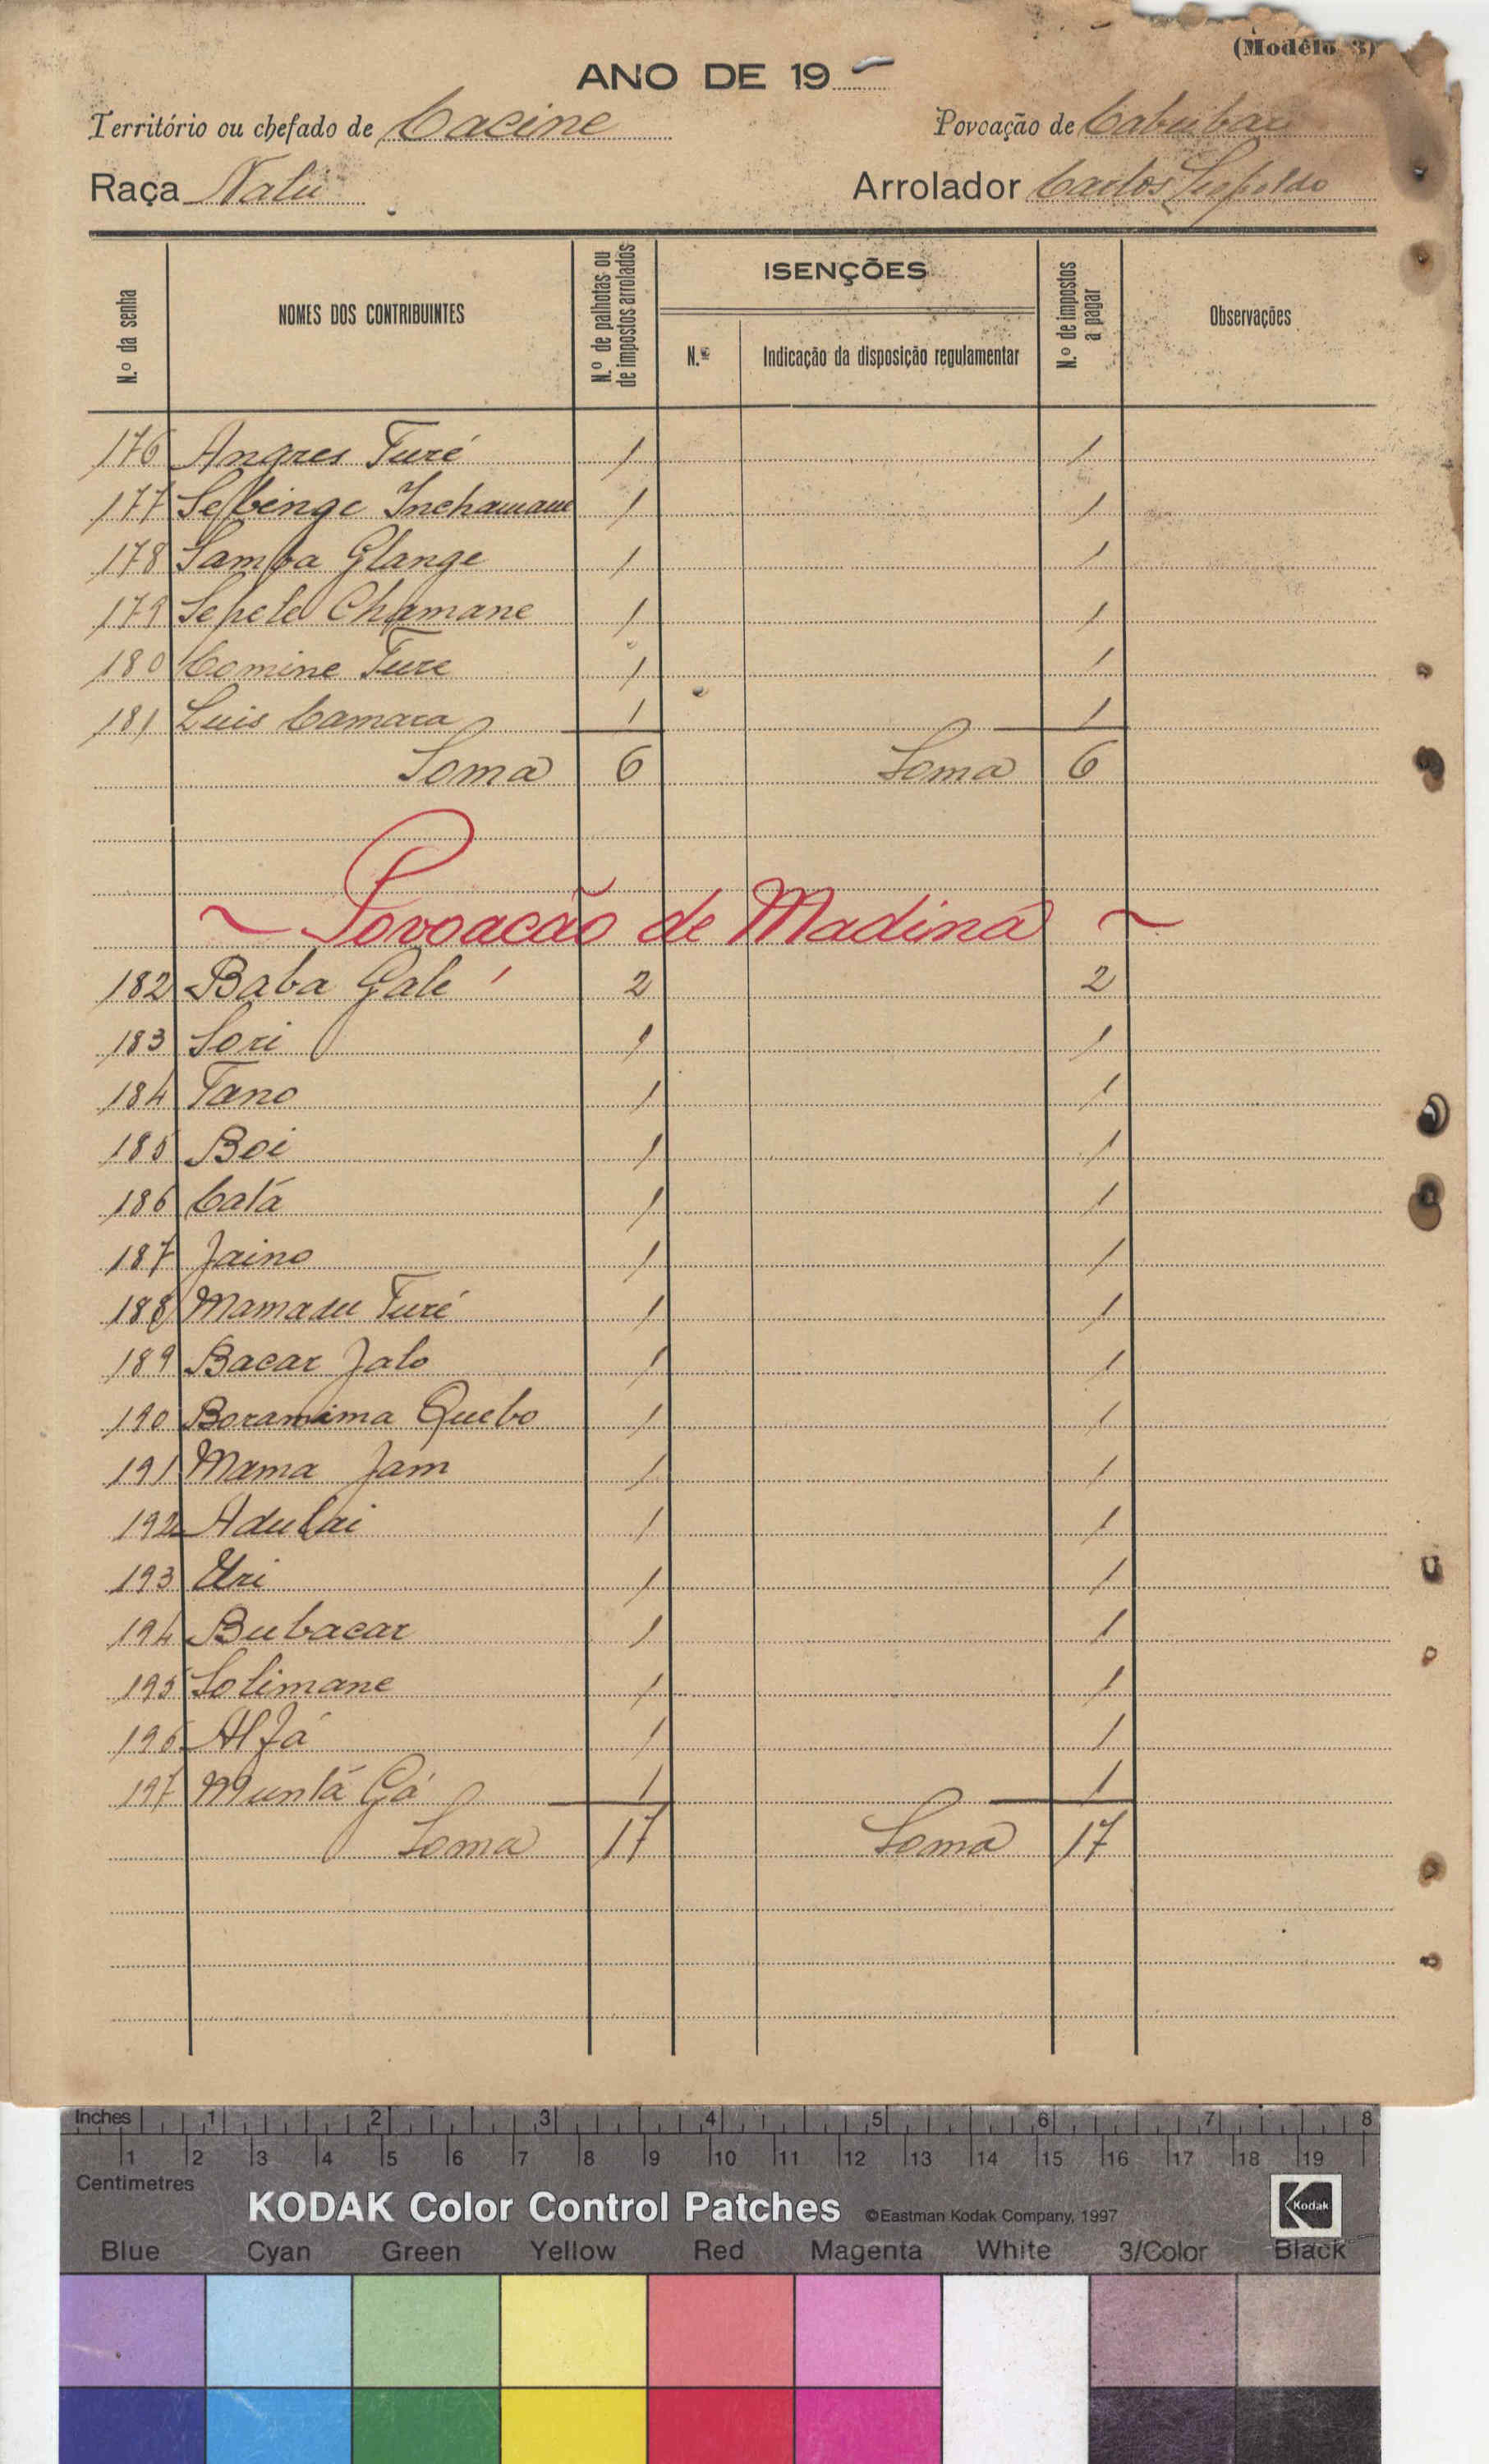 (Modêlo 3)
ANO DE 19
Território ou chefado de Cacine Povoação de
Raça Nalú Arrolador Carlos Leopoldo
N.º da senha NOMES DOS CONTRIBUINTES N.º de palhotas ou de impostos arrolados ISENÇÕES N.º Indicação da disposição regulamentar N.º de impostos a pagar Observações
176 Angres Turé 1 1
177 1 1
178 Samba Glange 1 1
179 Chamane 1 1
180 Comine Ture 1 1
181 Luis Camara 1 1
Soma 6 Soma 6
~ Povoacão de Madina ~
182 Baba Galé 2 2
183 Sori 1 1
184 Tano 1 1
185 Boi 1 1
186 Catá 1 1
187 Jaino 1 1
188 Mamadu Turé 1 1
189 Bacar Jalo 1 1
190 Boramima Quebo 1 1
191 Mama Jam 1 1
192 Adulai 1 1
193 Uri 1 1
194 Bubacar 1 1
195 Solimane 1 1
196 Alfá 1 1
197 Muntá Gá 1 1
Soma 17 Soma 17
Inches 1 2 3 4 5 6 7 8
1 2 3 4 5 6 7 8 9 10 11 12 13 14 15 16 17 18 19
Centimetres
KODAK Color Control Patches ©Eastman Kodak Company, 1997 Kodak
Blue Cyan Green Yellow Red Magenta White 3/Color Black